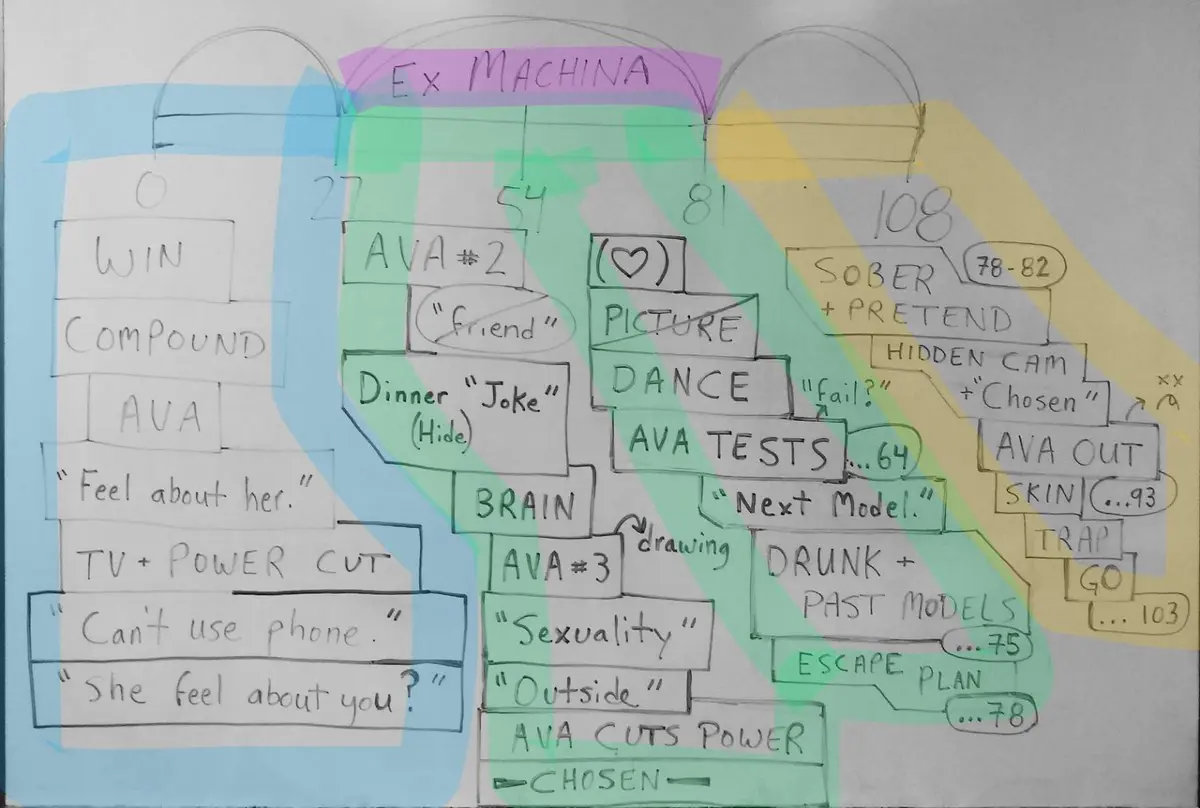 EX MACHINA
0
27
54
81
108
WIN
COMPOUND
AVA
"Feel about her."
TV + POWER CUT
"Can't use phone."
"She feel about you?"
AVA #2
"friend"
Dinner "Joke"
(Hide)
BRAIN
AVA #3
drawing
"Sexuality"
"Outside"
AVA CUTS POWER
CHOSEN
(♡)
PICTURE
DANCE
"Fail?"
AVA TESTS
...64
"Next Model."
DRUNK +
PAST MODELS
...75
ESCAPE PLAN
...78
SOBER
+ PRETEND
78-82
HIDDEN CAM
+ "Chosen"
xx
AVA OUT
SKIN
...93
TRAP
GO
...103